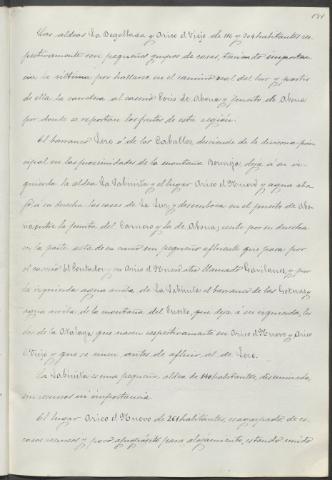 Las aldeas La Degollada y Arico el Viejo de 116 y 204 habitantes res-
pectivamente son pequeños grupos de casas, teniendo importan-
cia la última por hallarse en el camino real del Sur y partir
de ella la carretera al caserío Poris de Abona y puerto de Abona
por donde se exportan los frutos de esta región.
El barranco Lere ó de los Caballos, desciende de la divisoria prin-
cipal en las proximidades de la montaña; deja á su iz-
quierda la aldea La Sabinita y el lugar Arico el Nuevo y aguas aba-
jo á su derecha las casas de La Luz, y desemboca en el puerto de Abo-
na entre la punta del Carnero y la de Abona; recibe por su derecha
en la parte alta de su curso un pequeño afluente que pasa por
el caserío del Contador y en Arico el Nuevo otro llamado Gavilanes, y por
la izquierda aguas arriba de La Sabinita el barranco de las
aguas arriba de la montaña del, que deja á su izquierda, los
de la Málaga que nacen respectivamente en Arico el Nuevo y Arico
el Viejo y que se unen antes de afluir al de Lere.
La Sabinita es una pequeña aldea de 140 habitantes, diseminada,
sin recursos ni importancia.
El lugar Arico el Nuevo de 261 habitantes, escasa parte de es-
casos recursos y poco apropósito para alojamiento, estando unido